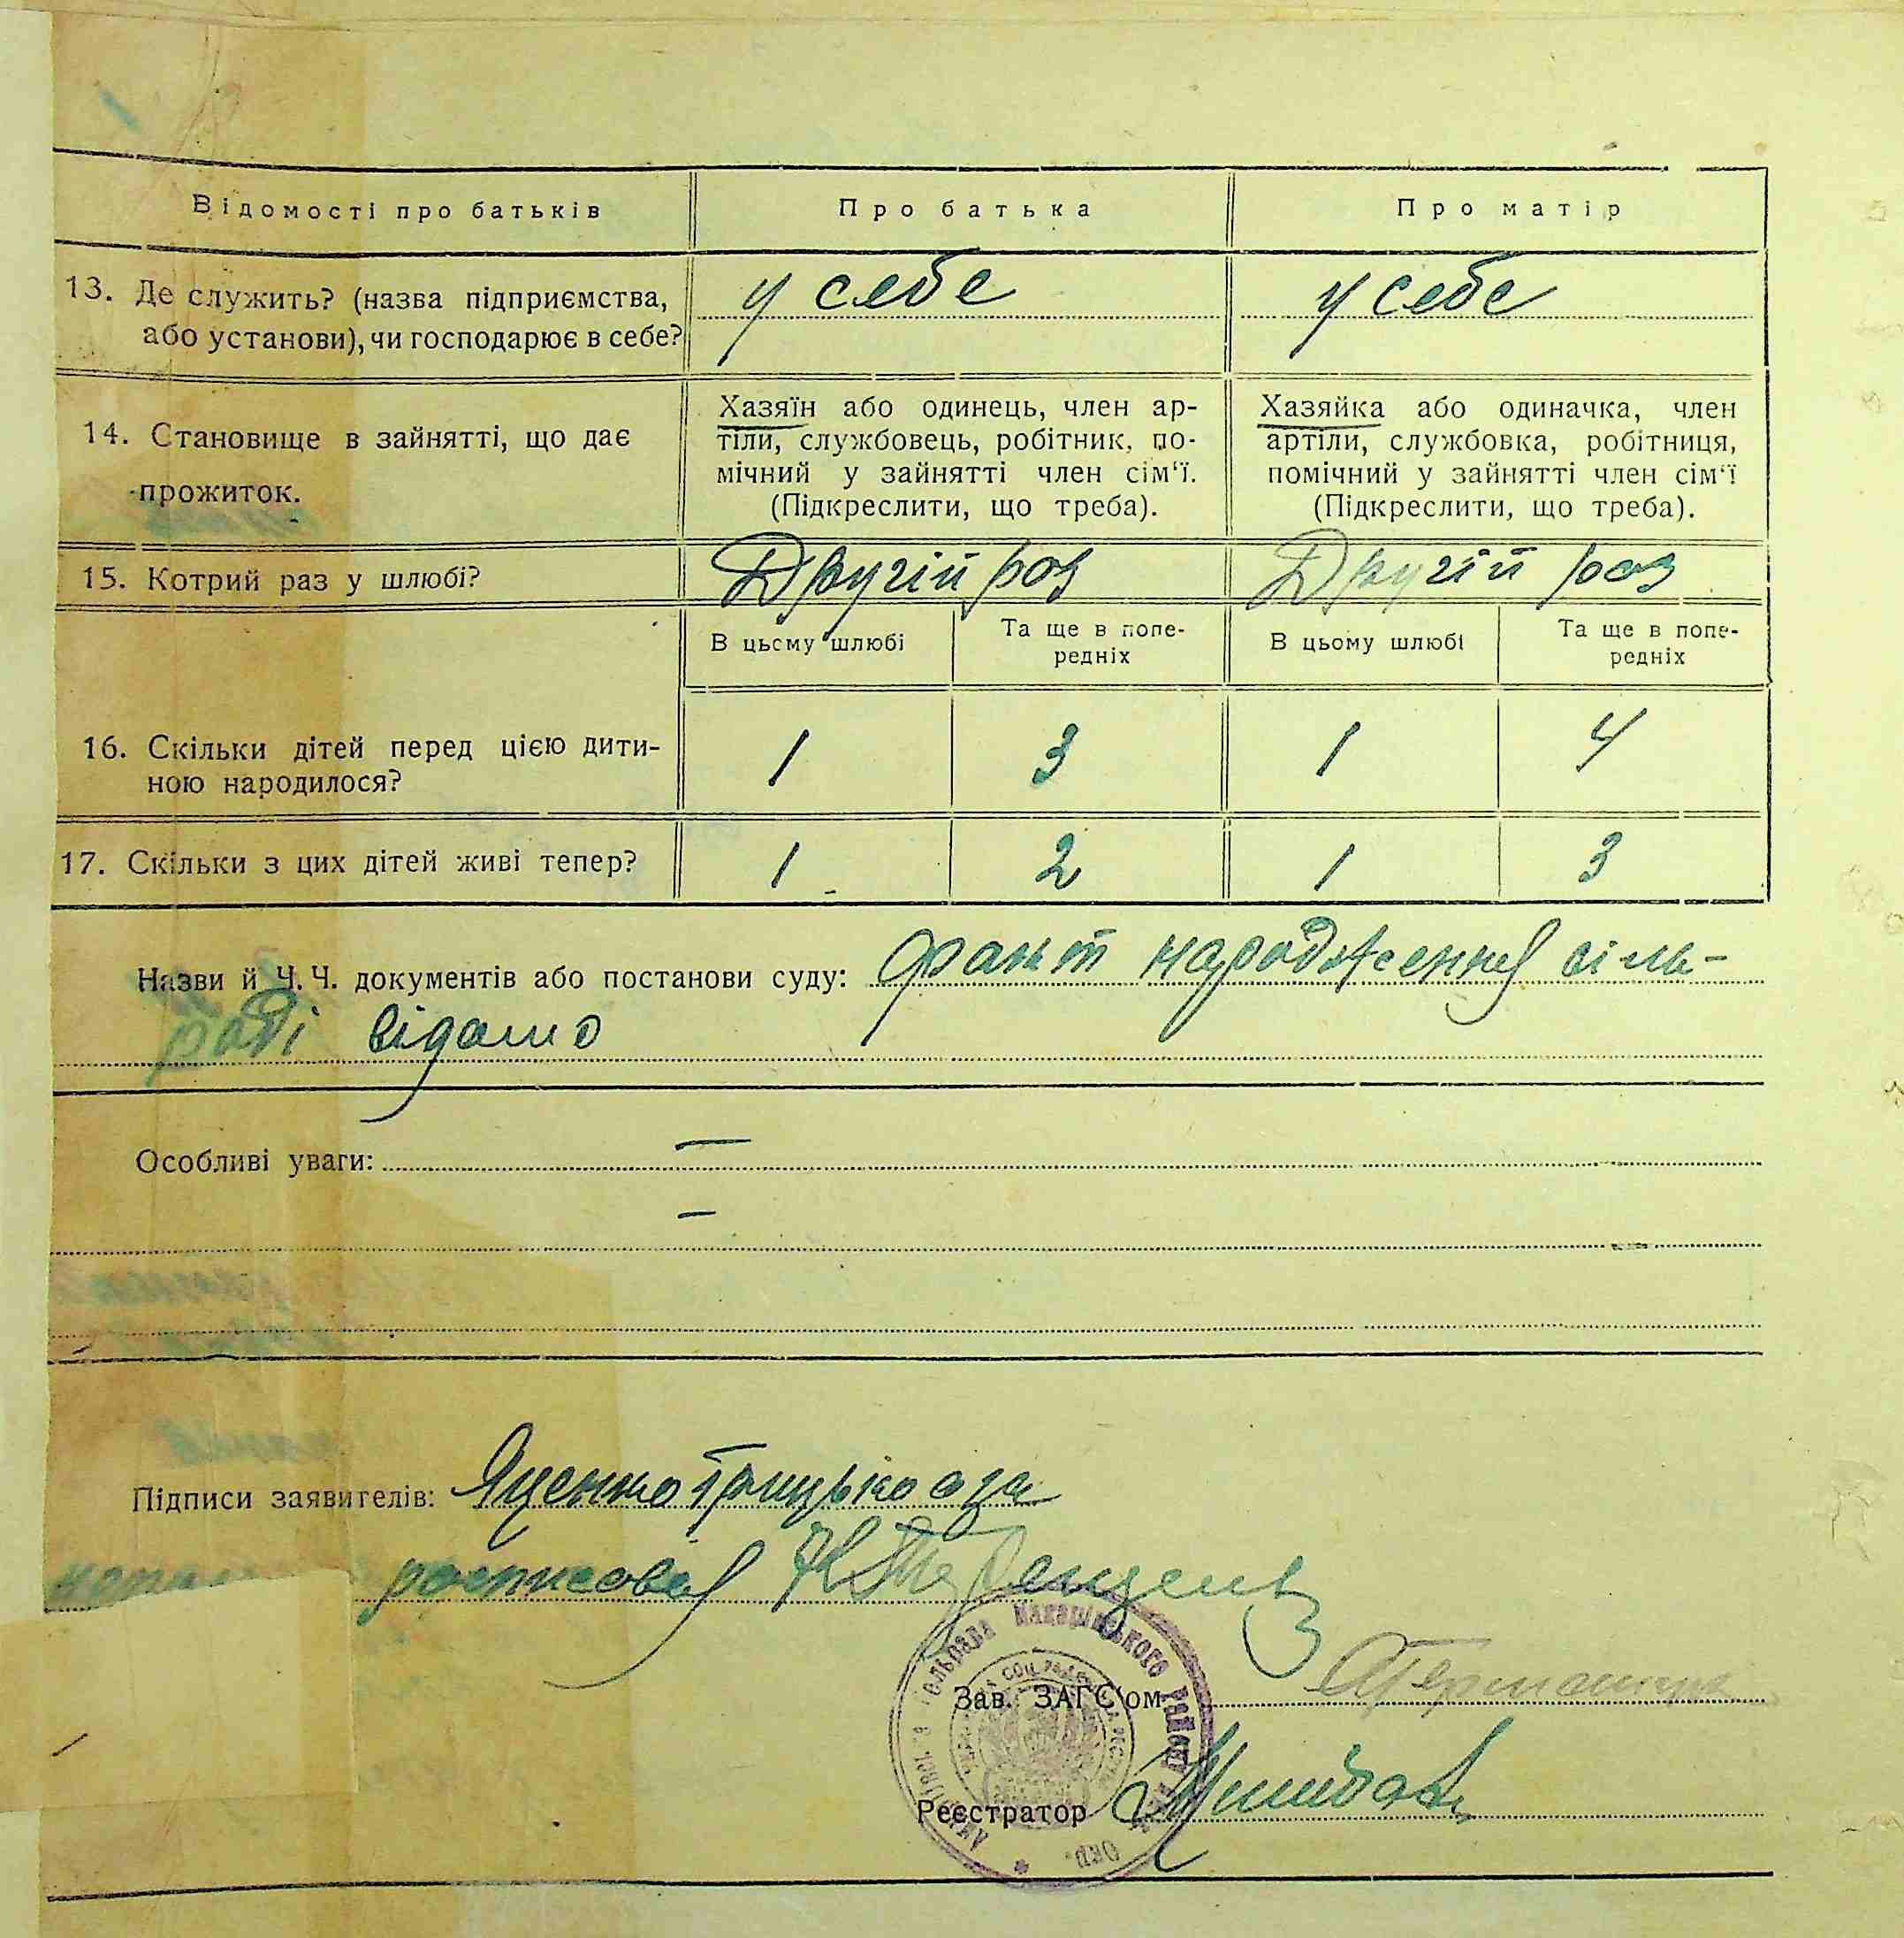 Відомості про батьків
Про батька
Про матір
13. Де служить? (назва підприємства,
або установи), чи господарює в себе?
у себе
у себе
14. Становище в зайнятті, що дає
прожиток.
Хазяїн або одинець, член ар-
тіли, службовець, робітник, по-
мічний у зайнятті член сім'ї.
(Підкреслити, що треба).
Хазяйка або одиначка, член
артіли, службовка, робітниця,
помічний у зайнятті член сім'ї
(Підкреслити, що треба).
15. Котрий раз у шлюбі?
Другій раз
Другій раз
В цьому шлюбі
Та ще в попе-
редніх
В цьому шлюбі
Та ще в попе-
редніх
16. Скільки дітей перед цією дити-
ною народилося?
1
3
1
4
17. Скільки з цих дітей живі тепер?
1
2
1
3
Назви й Ч. Ч. документів або постанови суду: факт народження сіль-
раді відомо
Особливі уваги: —
—
Підписи заявителів: Яценко Грицько за
росписавсь
Зав. ЗАГС'ом
Реєстратор
сільрада Макарівського району